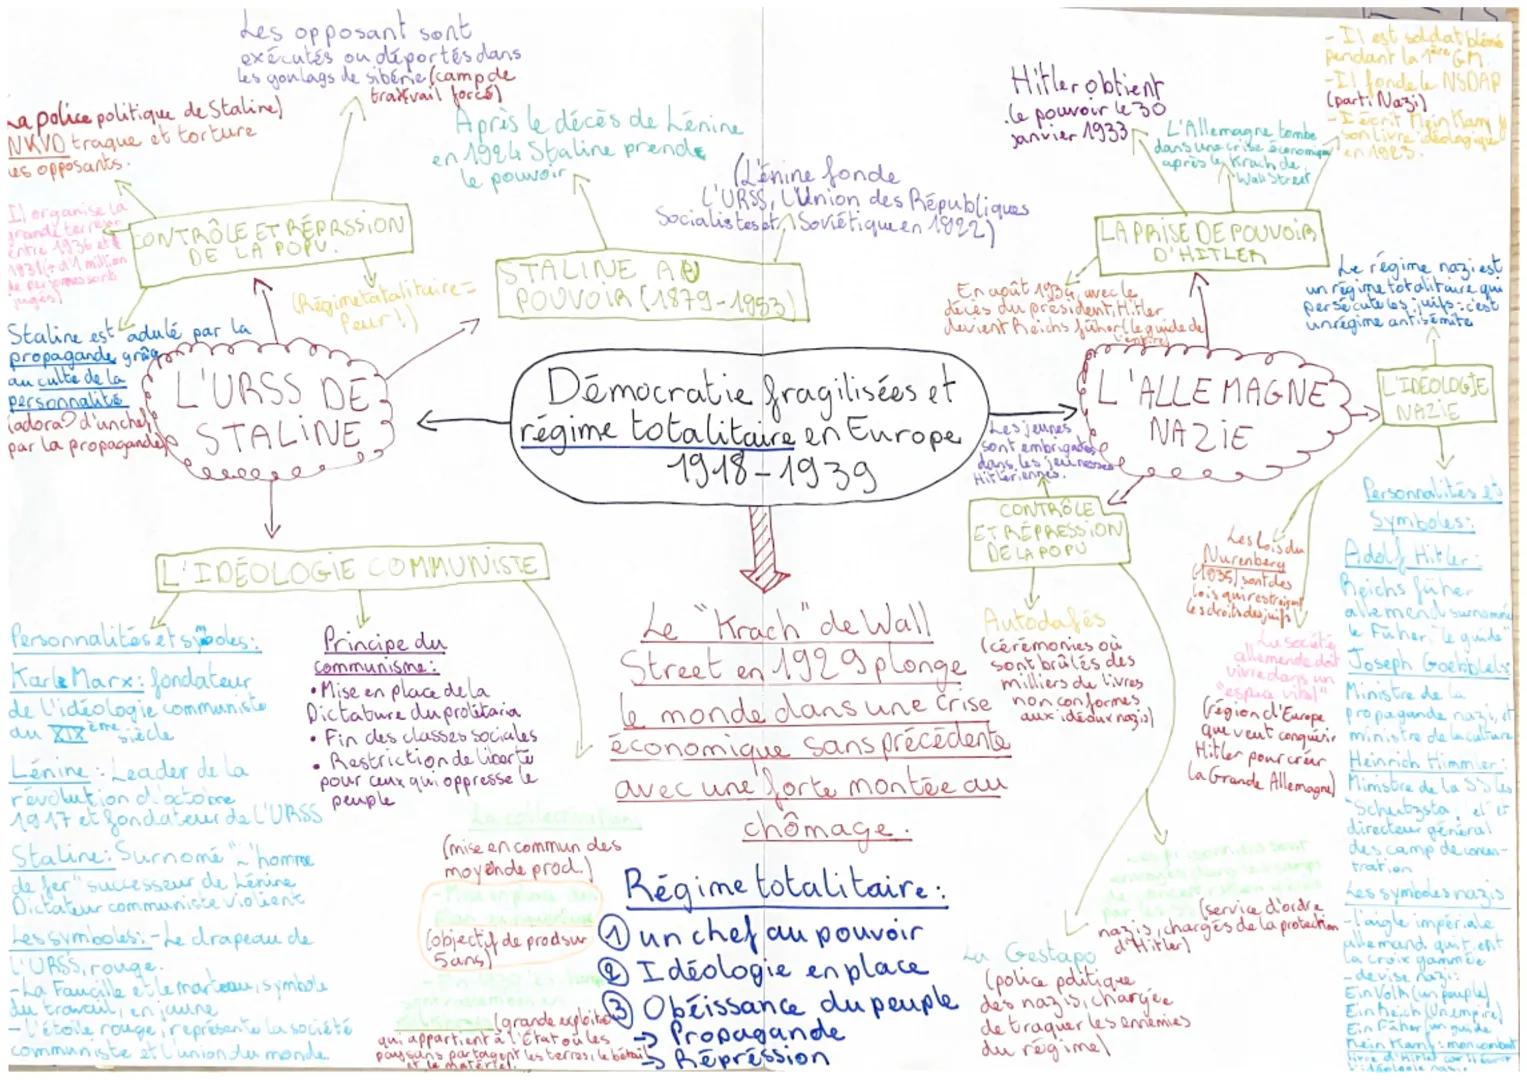 Les opposant sont
exécutés ou déportés dans
les goulags de sibérie (camp de
travail forcé)
La police politique de Staline)
NKVD traque et torture
les opposants.
Il organise la
grande terreur
entre 1936 et
1938 (+ d'1 million
de personnes sont
jugés)
CONTRÔLE ET RÉPRSSION
DE LA POPU.
(Régime totalitaire =
Peur!)
Staline est adulé par la
propagande grâce
au culte de la
personnalité
(adora° d'un chef
par la propagande)
L'URSS DE
STALINE
Après le décès de Lénine
en 1924 Staline prende
le pouvoir
(Lénine fonde
L'URSS, L'Union des Républiques
Socialistes et Soviétique en 1922)
STALINE AU
POUVOIR (1879-1953)
Démocratie fragilisées et
régime totalitaire en Europe
1918-1939
Hitler obtient
le pouvoir le 30
janvier 1933
L'Allemagne tombe
dans une crise économique
après le Krach de
Wall Street
- Il est soldat
pendant la 1ère GM.
- Il fonde le NSDAP
(parti Nazi)
- Il écrit Mein Kampf
son livre idéologique
en 1925.
LA PRISE DE POUVOIR
D'HITLER
En août 1934, avec le
décès du président, Hitler
devient Reichs führer (le guide de
l'empire)
Le régime nazi est
un régime totalitaire qui
persécute les juifs : c'est
un régime antisémite
L'ALLEMAGNE
NAZIE
L'IDÉOLOGIE
NAZIE
Les jeunes
sont embrigadés
dans les jeunesses
Hitlériennes.
CONTRÔLE
ET RÉPRESSION
DE LA POPU
Autodafés
(cérémonies où
sont brûlés des
milliers de livres
non conformes
aux idéaux nazis)
Les Lois du
Nurenberg
(1935) sont des
lois qui restreignent
les droits des juifs
La société
allemande doit
vivre dans un
"espace vital"
(région d'Europe
que veut conquérir
Hitler pour créer
la Grande Allemagne)
Personnalités et
Symboles :
Adolf Hitler :
Reichs führer
allemend surnommé
le Führer, "le guide"
Joseph Goebbels
Ministre de la
propagande nazi, et
ministre de la culture
Heinrich Himmler :
Ministre de la SS les
"Schutzsta, et
directeur général
des camp de concen-
tration
Les symboles nazis
- l'aigle impériale
allemand qui tient
la croix gammée
- devise nazi :
Ein Volk (un peuple)
Ein Reich (Un empire)
Ein Führer (un guide
Mein Kampf : mon combat
livre d'Hitler
l'idéologie nazie
L'IDÉOLOGIE COMMUNISTE
Personnalités et symboles :
Karl Marx : fondateur
de l'idéologie communiste
au XIXème siècle
Lénine : Leader de la
révolution d'octobre
1917 et fondateur de L'URSS
Staline : Surnomé "L'homme
de fer" successeur de Lénine
Dictateur communiste violent
Les symboles : - Le drapeau de
L'URSS, rouge.
- La Faucille et le marteau, symbole
du travail, en jaune
- L'étoile rouge, représente la société
communiste et l'union du monde.
Principe du
communisme :
• Mise en place de la
Dictature du prolétaria
• Fin des classes sociales
• Restriction de liberté
pour ceux qui oppresse le
peuple
La collectivisation
(mise en commun des
moyen de prod.)
- Mise en place des
(objectif de prod sur
5ans)
(grande exploita°
qui appartient à l'État où les
paysans partagent les terres, le bétail
et le matériel.
Le "Krach" de Wall
Street en 1929 plonge
le monde dans une crise
économique sans précédente
avec une forte montée au
chômage.
Régime totalitaire :
① un chef au pouvoir
② Idéologie en place
③ Obéissance du peuple
→ Propagande
→ Répression
(service d'ordre
nazis, chargés de la protection
d'Hitler)
La Gestapo
(police politique
des nazis, chargée
de traquer les ennemies
du régime)